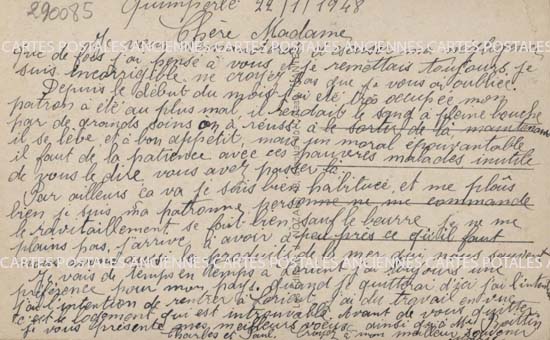 290085
Quimperlé 22/1/1948
Chère Madame
que de fois j'ai pensé à vous et je remettais toujours, je
suis incorrigible ne croyez pas que je vous ai oubliée.
Depuis le début du mois j'ai été très occupée mon
patron a été au plus mal, il rendait le sang à pleine bouche
par de grands soins on a réussi à le sortir de là maintenant
il se lève et a bon appétit, mais un moral épouvantable
il faut de la patience avec ces pauvres malades inutile
de vous le dire vous avez passé
Par ailleurs ça va je suis bien habituée, et me plais
bien je suis ma patronne personne ne me commande
le ravitaillement se fait bien sauf le beurre je ne me
plains pas, j'arrive à avoir à peu près ce qu'il faut
CARTES POSTALES ANCIENNES
Je vais de temps en temps à Lorient j'ai toujours une
préférence pour mon pays. Quand je quitterai d'ici j'ai l'intent
j'ai l'intention de rentrer à Lorient j'ai du travail en vue
c'est le logement qui est introuvable. Avant de vous quitter
je vous présente mes meilleurs voeux ainsi qu'à
Charles et Paul. Croyez à mon meilleur souvenir